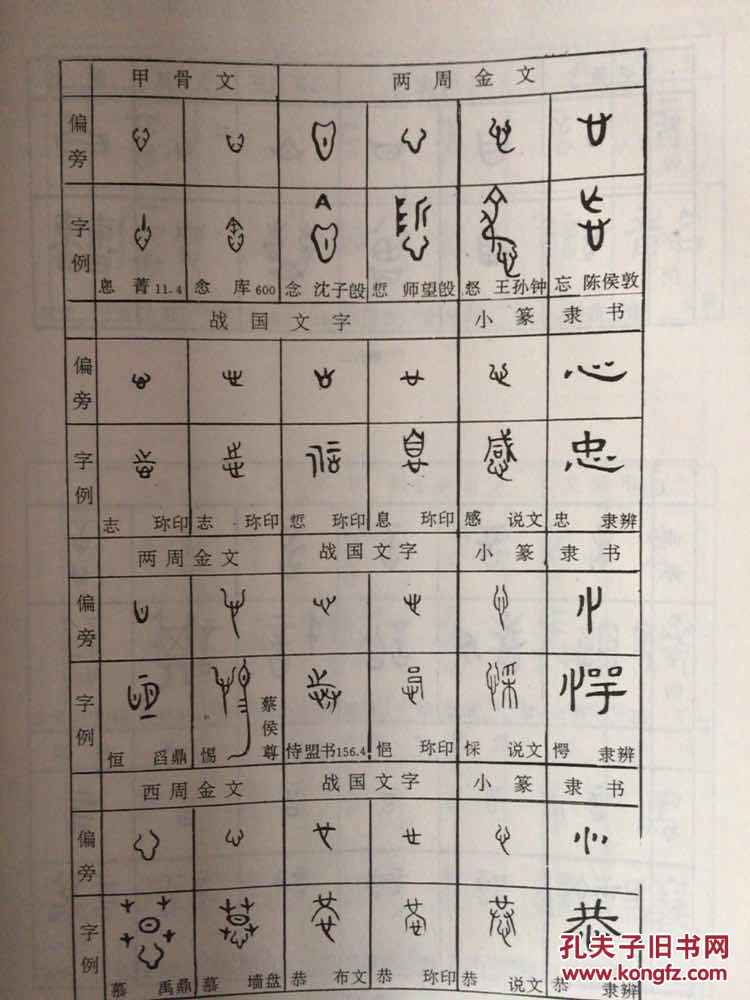 甲骨文 两周金文
偏旁
字例
恖 菁11.4 念 库600 念 沈子𣪘 悊 师望𣪘 怒 王孙钟 忘 陈侯敦
战国文字 小篆 隶书
偏旁
字例
志 珎印 志 珎印 悊 珎印 息 珎印 感 说文 忠 隶辨
两周金文 战国文字 小篆 隶书
偏旁
字例
恒 舀鼎 惕 蔡侯尊 恃 盟书156.4 悒 珎印 悰 说文 愕 隶辨
西周金文 战国文字 小篆 隶书
偏旁
字例
慕 禹鼎 慕 墙盘 恭 布文 恭 珎印 恭 说文 恭 隶辨
孔夫子旧书网
www.kongfz.com